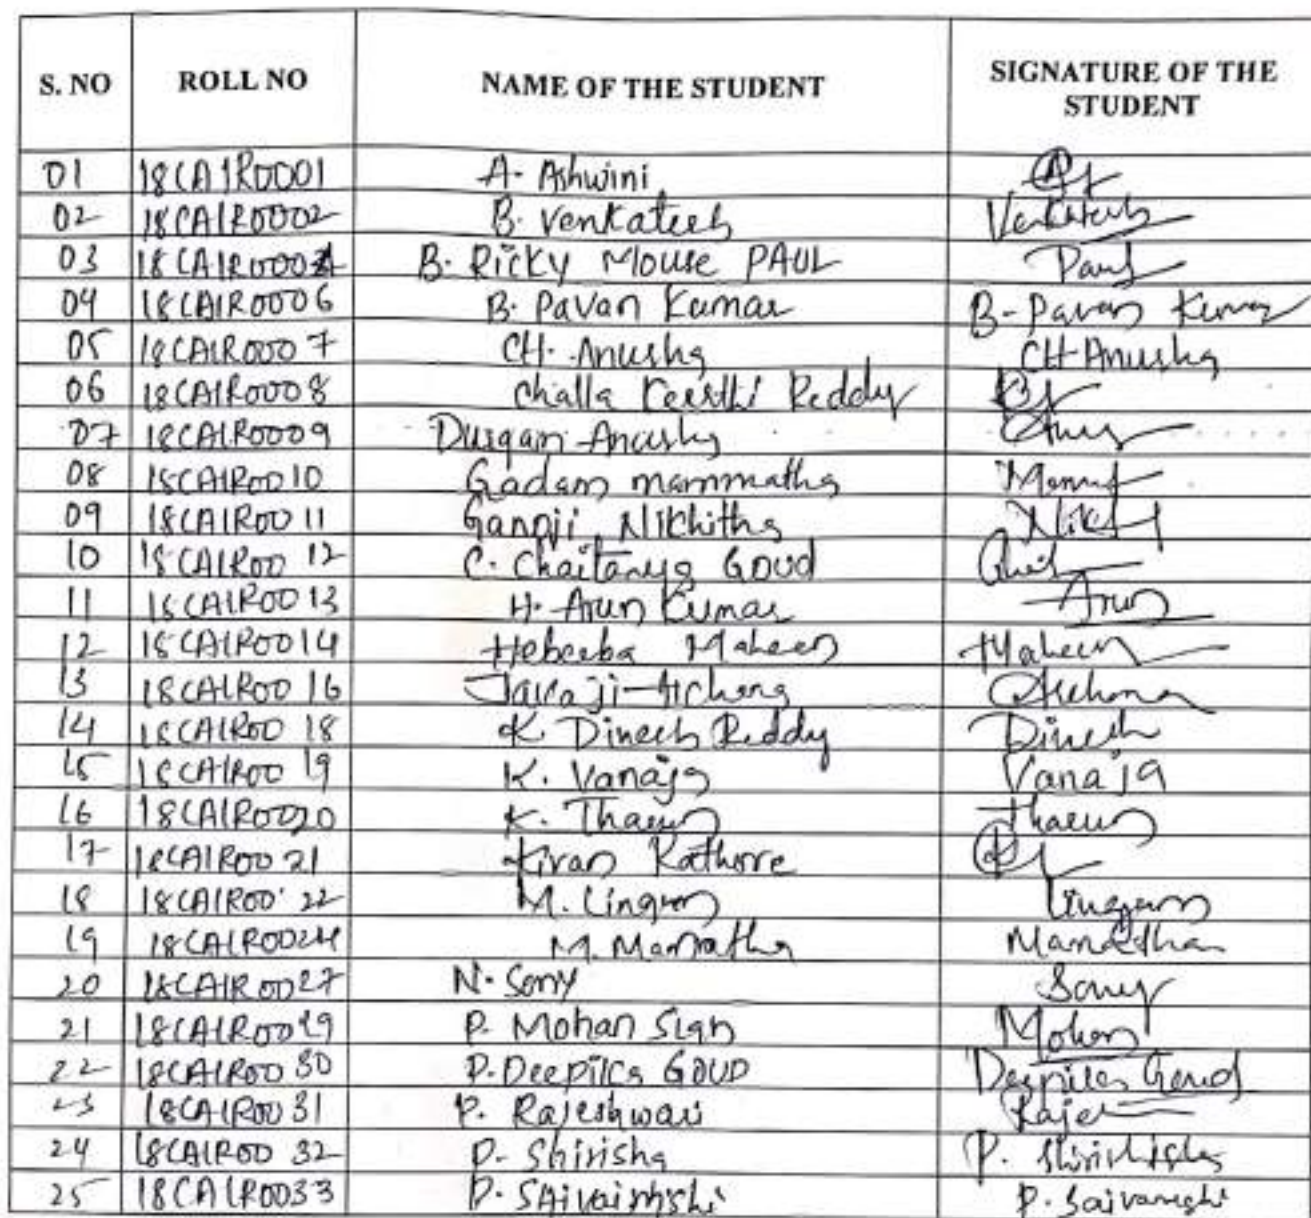 S. NO ROLL NO NAME OF THE STUDENT SIGNATURE OF THE STUDENT
01 18CA1R0001 A. Ashwini
02 18CA1R0002 B. Venkatesh Venkatesh
03 B. Ricky Mouse PAUL Paul
04 18CA1R0006 B. Pavan Kumar B-Pavan Kumar
05 18CA1R0007 CH. Anusha CH Anusha
06 18CA1R0008 Challa Keerthi Reddy
07 18CA1R0009 Durgam Anusha
08 18CA1R0010 Gadam mammatha
09 18CA1R0011 Ganoji Nikhitha
10 18CA1R0012 C. Chaitanya GOUD
11 18CA1R0013 H. Arun Kumar Arun
12 18CA1R0014 Hebeeba Maheen Maheen
13 18CA1R0016 Archana Archana
14 18CA1R0018 K. Dinesh Reddy Dinesh
15 18CA1R0019 K. Vanaja Vanaja
16 18CA1R0020 K. Tharun Tharun
17 18CA1R0021 Kiran Rathore
18 18CA1R0022 M. Lingam Lingam
19 18CA1R0024 M. Mamatha
20 18CA1R0027 N. Sony Sony
21 18CA1R0029 P. Mohan Sign Mohan
22 18CA1R0030 P. Deepika GOUD Deepika Goud
23 18CA1R0031 P. Rajeshwari
24 18CA1R0032 P. Shirisha P.
25 18CA1R0033 P. P.